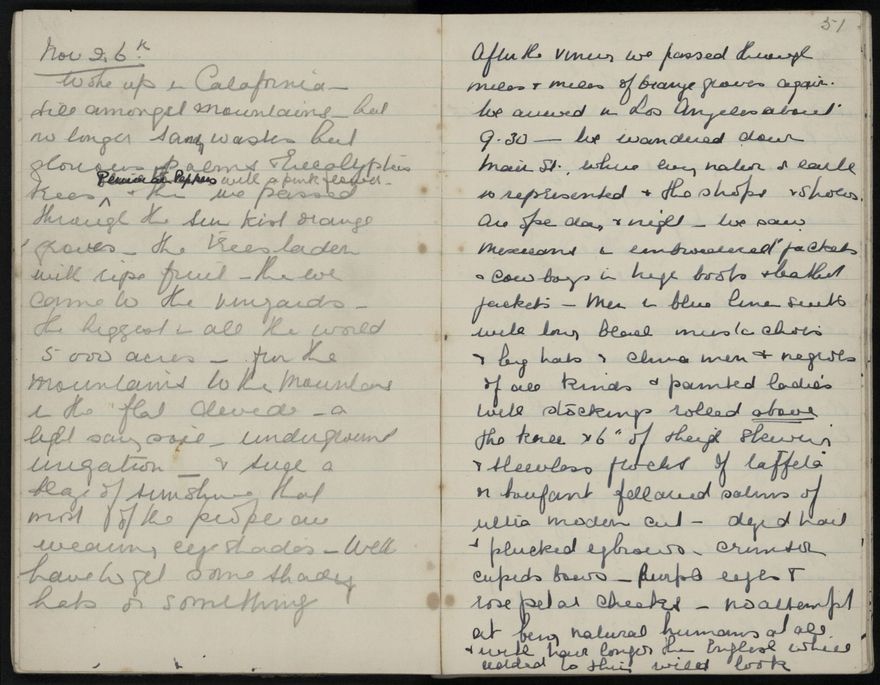 Nov 26th
Woke up in Calafornia —
still amongst mountains — but
no longer sandy wastes but
glorious palms & Eucalyptus
Peruvian Peppers with a pink flower.
trees & then we passed
through the sun kist orange
groves — the trees laden
with ripe fruit — then we
came to the vineyards —
the biggest in all the world
5000 acres — from the
mountains to the mountains
in the flat — a
light sandy soil — underground
irrigation — & such a
blaze of sunshine that
most of the people are
wearing eye shades — Well
have to get some shady
hats or something
51
After the vines we passed through
miles & miles of orange groves again.
We arrived in Los Angeles about
9.30 — we wandered down
Main St. where every nation on earth
is represented & the shops & shows
are open day & night — we saw
Mexicans in embroidered jackets
& cowboys in huge boots & leather
jackets — Men in blue linen suits
with long black
& big hats & china men & negroes
of all kinds & painted ladies
with stockings rolled above
the knee & 6" of their
& sleeveless frocks of taffeta
or bouffant satins of
ultra modern cut — dyed hair
& plucked eyebrows — crimson
cupids bows — purple eyes &
rose petal cheeks — no attempt
at being natural humans at all.
& with hair longer than English which
added to their wild look